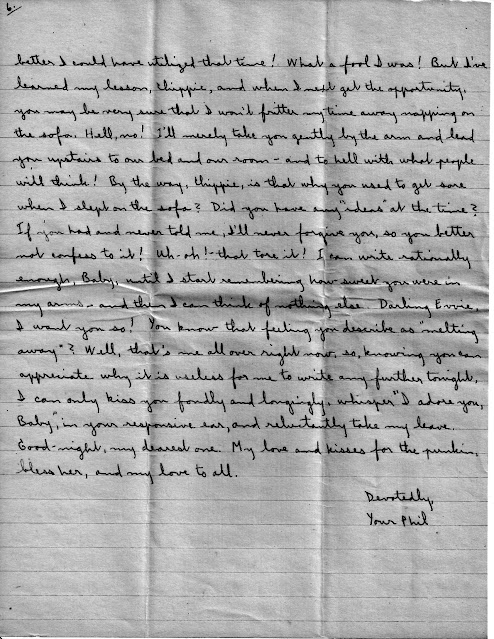 6.
better I could have utilized that time! What a fool I was! But I've
learned my lesson, Chippie, and when I next get the opportunity,
you may be very sure that I won't fritter my time away napping on
the sofa. Hell, no! I'll merely take you gently by the arm and lead
you upstairs to our bed and our room - and to hell with what people
will think! By the way, Chippie, is that why you used to get sore
when I slept on the sofa? Did you have any "ideas" at the time?
If you had and never told me, I'll never forgive you, so you better
not confess to it! Uh-oh! - that tore it! I can write rationally
enough, Baby, until I start remembering how sweet you were in
my arms - and then I can think of nothing else. Darling Evvie,
I want you so! You know that feeling you describe as "melting
away"? Well, that's me all over right now, so, knowing you can
appreciate why it is useless for me to write any further tonight,
I can only kiss you fondly and longingly, whisper "I adore you,
Baby", in your responsive ear, and reluctantly take my leave.
Good-night, my dearest one. My love and kisses for the punkin,
bless her, and my love to all.
Devotedly,
Your Phil